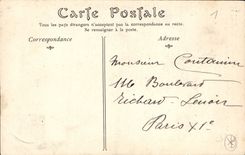 Carte Postale
Tous les pays étrangers n'acceptent pas la correspondance au recto.
Se renseigner à la poste.
Correspondance
Adresse
1
Monsieur
116 Boulevard
Richard-Lenoir
Paris XIe